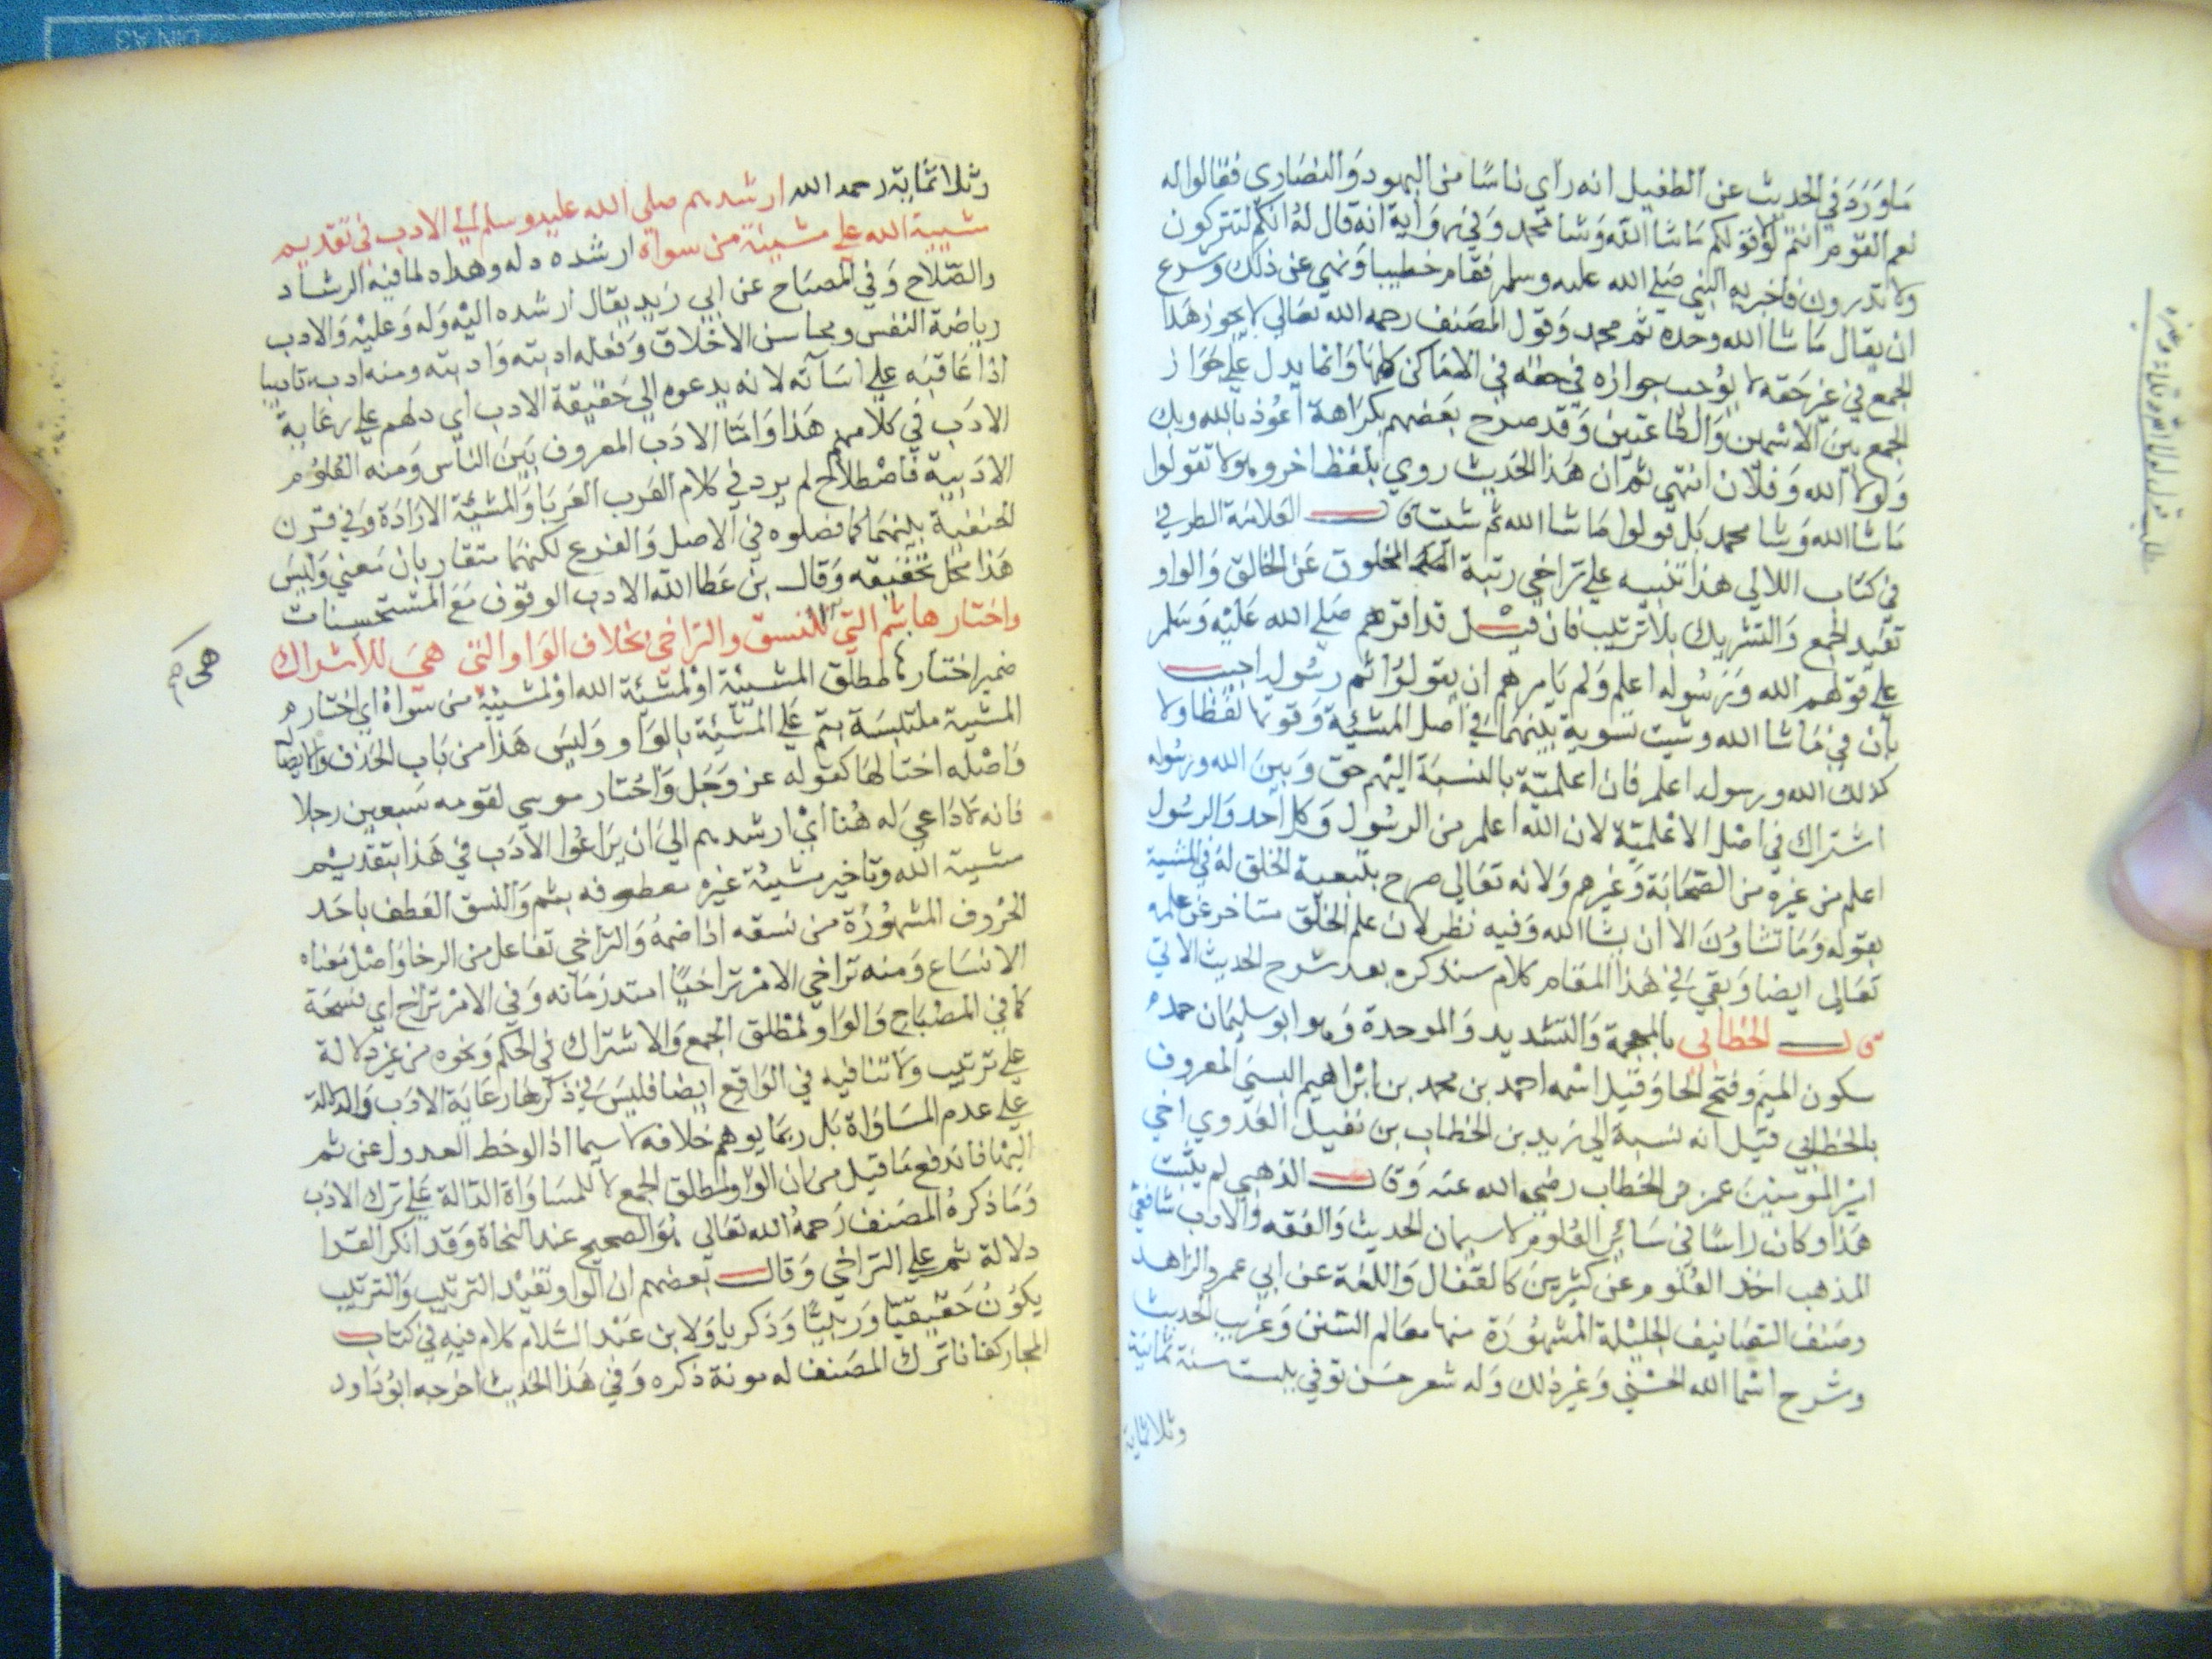 ما ورد في الحديث عن الطفيل انه راى ناسًا من اليهود والنصارى فقالوا له
نعم القوم انتم لولا قولكم ما شا الله وشا محمد وفي رواية انه قال له انكم لتشركون
ولا تدرون فاخبر به النبي صلي الله عليه وسلم فقام خطيبا ونهي عن ذلك وشرع
ان يقال ما شا الله وحده ثم محمد وقول المصنف رحمه الله تعالي لا يجوز هذا
الجمع في غير حقه لا يوجب جوازه في حقه في الاماكن كلها وانما يدل علي جواز
الجمع بين الاسمين والطاعتين وقد صرح بعضهم بكراهة اعوذ بالله وبك
ولولا الله وفلان انتهي ثم ان هذا الحديث روي بلفظ اخر وهو لا تقولوا
ما شا الله وشا محمد بل قولوا ما شا الله ثم شئت قال العلامة الطوفي
في كتاب اللالي هذا تنبيه علي تراخي رتبة المخلوق عن الخالق والواو
تفيد الجمع والتشريك بلا ترتيب فان قيل قد اقرهم صلي الله عليه وسلم
علي قولهم الله ورسوله اعلم ولم يامرهم ان يقولوا ثم رسوله اجيب
بان في ما شا الله وشيت تسوية بينهما في اصل المشيئة وقوتها لفظا ولا
كذلك الله ورسوله اعلم فان اعلمية بالنسبة اليهم حق وبين الله ورسوله
اشتراك في اصل الاعلمية لان الله اعلم من الرسول وكل احد والرسول
اعلم من غيره من الصحابة وغيرهم ولانه تعالي صرح بتبعية الخلق له في المشيئة
بقوله وما تشاؤن الا ان يشا الله وفيه نظر لان علم الخلق متاخر عن علمه
تعالي ايضا وبقي في هذا المقام كلام سنذكره بعد شرح الحديث الاتي
قال الخطابي بالمعجمة والتشديد والموحدة وهو ابو سليمان حمد
سكون الميم وفتح الحا وقيل اسمه احمد بن محمد بن ابراهيم البستي المعروف
بالخطابي قيل انه نسبة الي زيد بن الخطاب بن نفيل العدوي اخي
امير المومنين عمر بن الخطاب رضي الله عنه وقال الذهبي لم يثبت
هذا وكان راسًا في سائر العلوم لا سيما في الحديث والفقه والادب شافعي
المذهب اخذ العلوم عن كثيرين كالقفال واللغة عن ابي عمر والزاهد
وصنف التصانيف الجليلة المشهورة منها معالم السنن وغريب الحديث
وشرح اسما الله الحسني وغير ذلك وله شعر حسن توفي ببست سنة ثمانية
وثلاثماية
وثلاثماية رحمه الله ارشدهم صلي الله عليه وسلم الي الادب في تقديم
مشيئة الله علي مشيئة من سواه ارشده دله وهداه لما فيه الرشاد
والصلاح وفي المصباح عن ابي زيد يقال ارشده اليه وله وعليه والادب
رياضة النفس ومحاسن الاخلاق وفعله ادبته وادبته ومنه ادبه تاديبا
اذا عاقبه علي اساته لانه يدعوه الي حقيقة الادب اي دلهم علي رعاية
الادب في كلامهم هذا واما الادب المعروف بين الناس ومنه العلوم
الادبية فاصطلاح لم يرد في كلام العرب العربا والمشيئة الارادة وفي فرق
الحنفية بينهما كما فصلوه في الاصل والفرع لكنهما متقاربان معني وليس
هذا محل تحقيقه وقال بن عطا الله الادب الوقوف مع المستحسنات
واختارها بثم التي للنسق والتراخي بخلاف الواو التي هي للاشراك
ضمير اختارها لمطلق المشيئة او لمشيئة الله او لمشيئة من سواه اي اختار
المشيئة ملتبسة بثم علي المشيئة بالواو وليس هذا من باب الحذف والايصال
واصله اختار لها كقوله عز وجل واختار موسي لقومه سبعين رجلا
فانه لا داعي له هنا اي ارشدهم الي ان يراعوا الادب في هذا بتقديم
مشيئة الله وتاخير مشيئة غيره معطوفه بثم والنسق العطف باحد
الحروف المشهورة من نسقه اذا ضمه والتراخي تفاعل من الرخا واصل معناه
الاتساع ومنه تراخي الامر تراخيًا امتد زمانه وفي الامر تراخ اي فسحة
كما في المصباح والواو لمطلق الجمع والاشتراك في الحكم ونحوه من غير دلالة
علي ترتيب ولا تنافيه في الواقع ايضا فليس في ذكرها رعاية الادب والدلالة
علي عدم المساواة بل ربما يوهم خلافه لا سيما اذا لوحظ العدول عن ثم
اليها فاندفع ما قيل من ان الواو لمطلق الجمع لا للمساواة الدالة علي ترك الادب
وما ذكره المصنف رحمه الله تعالي هو الصحيح عند النحاة وقد انكر الفرا
دلالة ثم علي التراخي وقال بعضهم ان الواو تفيد الترتيب والترتيب
يكون حقيقيًا ورتبيًا وذكريا ولابن عبد السلام كلام فيه في كتاب
المجاز كفانا ترك المصنف له مونة ذكره وفي هذا الحديث اخرجه ابو داود
هي صح